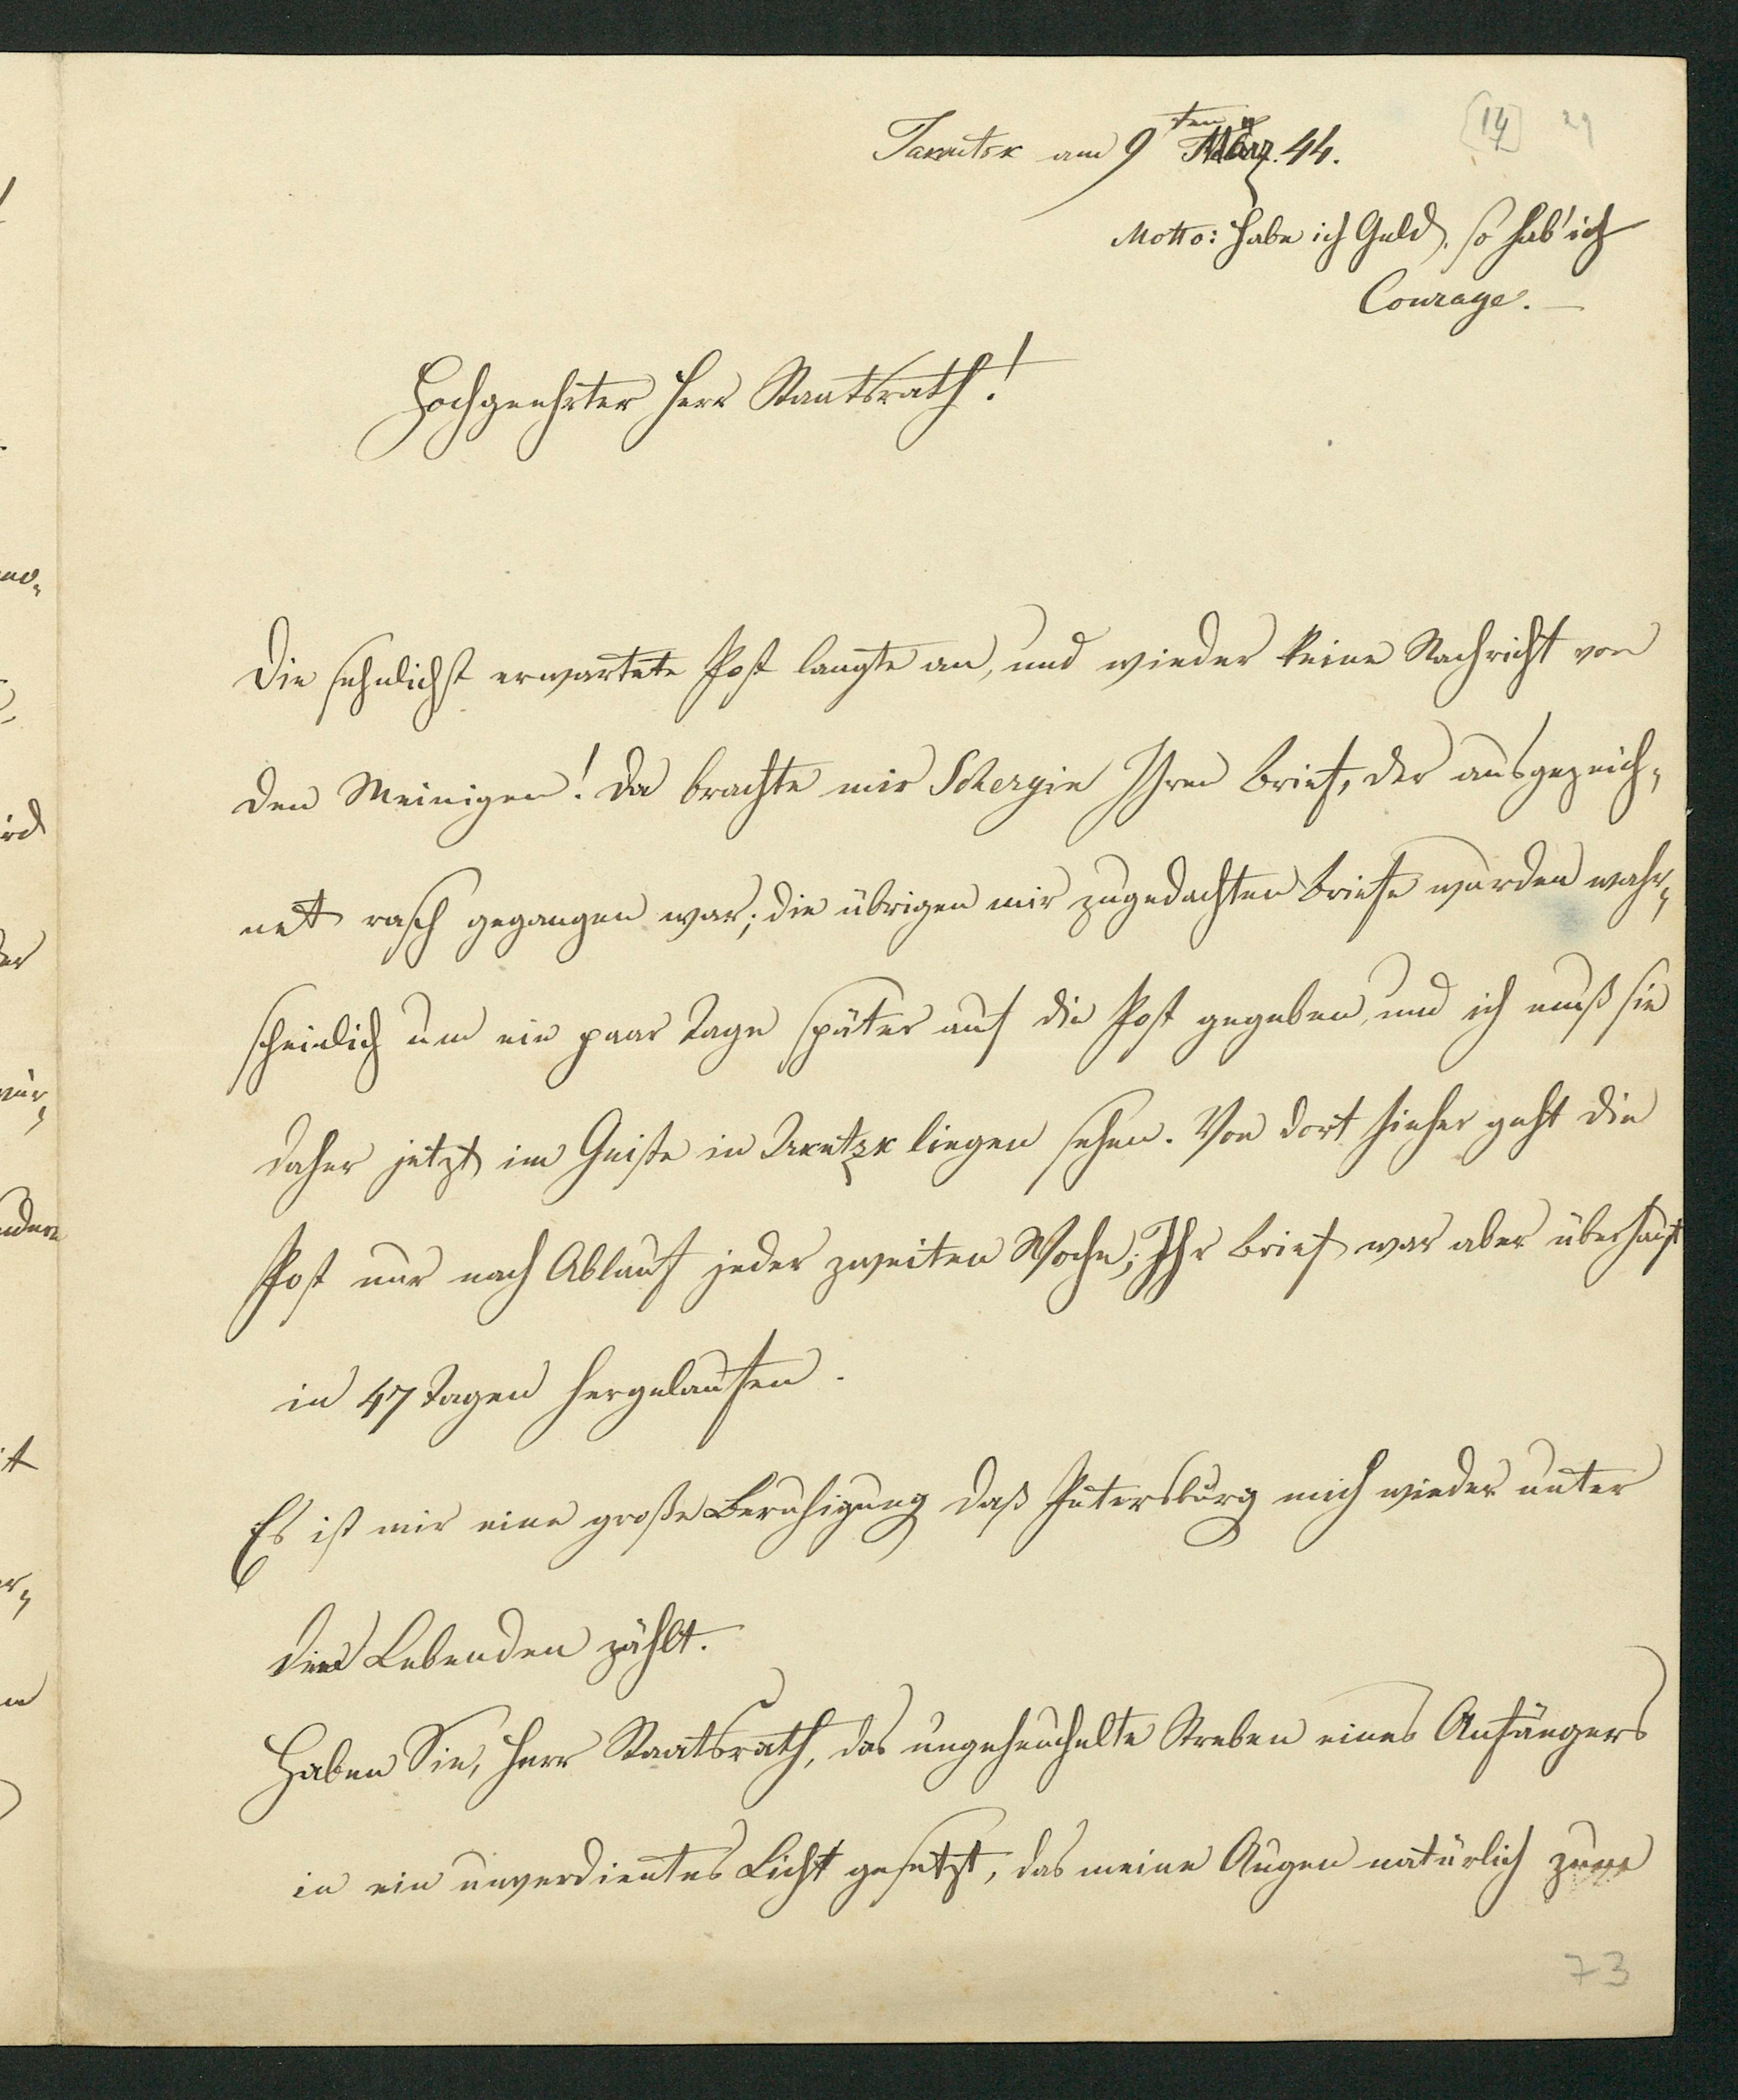 [14] 29
Jakutsk am 9ten März. 44.
Motto: Habe ich Geld, so hab' ich
Courage. —
Hochgeehrter Herr Staatsrath!
Die sehnlichst erwartete Post langte an, und wieder keine Nachricht von
den Meinigen! Da brachte mir Schergin Ihren Brief, der ausgezeich-
net rasch gegangen war; die übrigen mir zugedachten Briefe wurden wahr-
scheinlich um ein paar Tage später auf die Post gegeben, und ich muß sie
daher jetzt im Geiste in Irkutzk liegen sehen. Von dort hieher geht die
Post nur nach Ablauf jeder zweiten Woche; Ihr Brief war aber überhaupt
in 47 Tagen hergelaufen.
Es ist mir eine große Beruhigung daß Petersburg mich wieder unter
die Lebenden zählt.
Haben Sie, Herr Staatsrath, das ungeheuchelte Streben eines Anfängers
in ein unverdientes Licht gesetzt, das meine Augen natürlich zum
73